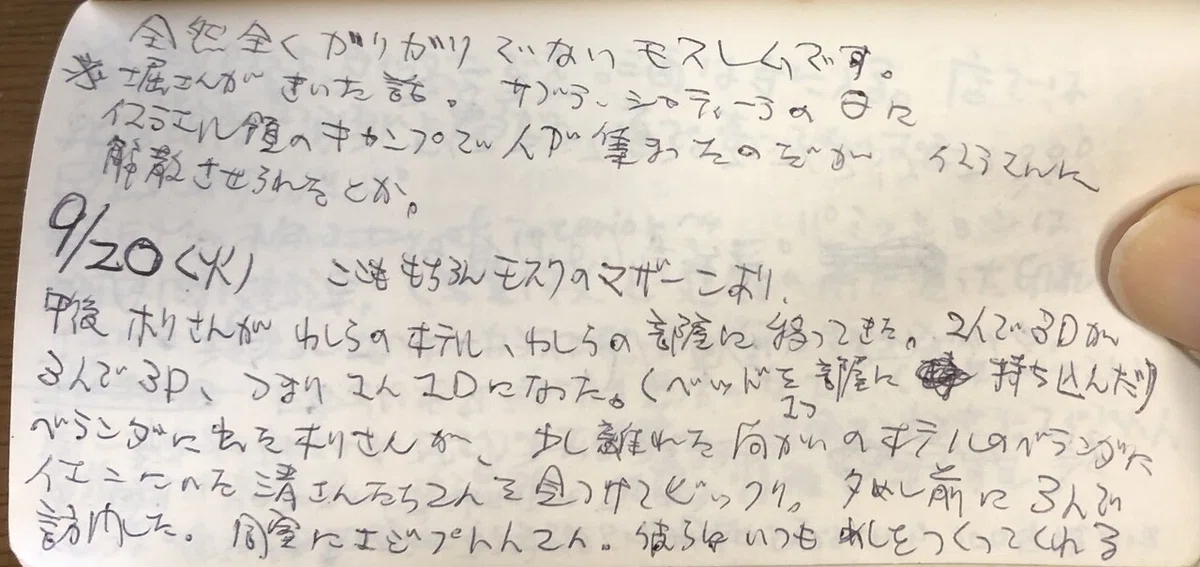 全然全くガリガリでないモスレムです。
堀さんがきいた話。サブラ・シャティーラの日に
イスラエル領のキャンプで人が集まったのだが イスラエルに
解散させられたとか。
9/20(火) ここももちろんモスクのマザーこあり、
午後ホリさんがわしらのホテル、わしらの部屋に移ってきた。2人で3Dが
3人で3D、つまり1人1Dになった。(ベッドを1つ部屋に持ち込んだ)
ベランダに出たホリさんが、少し離れた向かいのホテルのベランダに
イエメンにいた溝さんたち2人を見つけてビックリ。夕めし前に3人で
訪問した。同室にエジプト人2人。彼らはいつもめしをつくってくれる